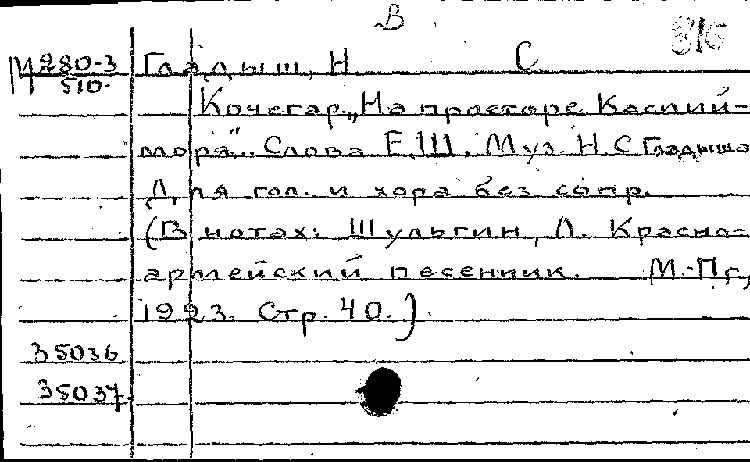 В
316
М 280-3
510.
Гладыш, Н. С
Кочегар „На просторе Каспий-
моря". Слова Е.Ш. Муз Н.С Гладыша
Для гол. и хора без сопр.
(В нотах: Шульгин, Л. Красно-
армейский песенник. М.-Пг,
1923. Стр. 40.)
35036
35037